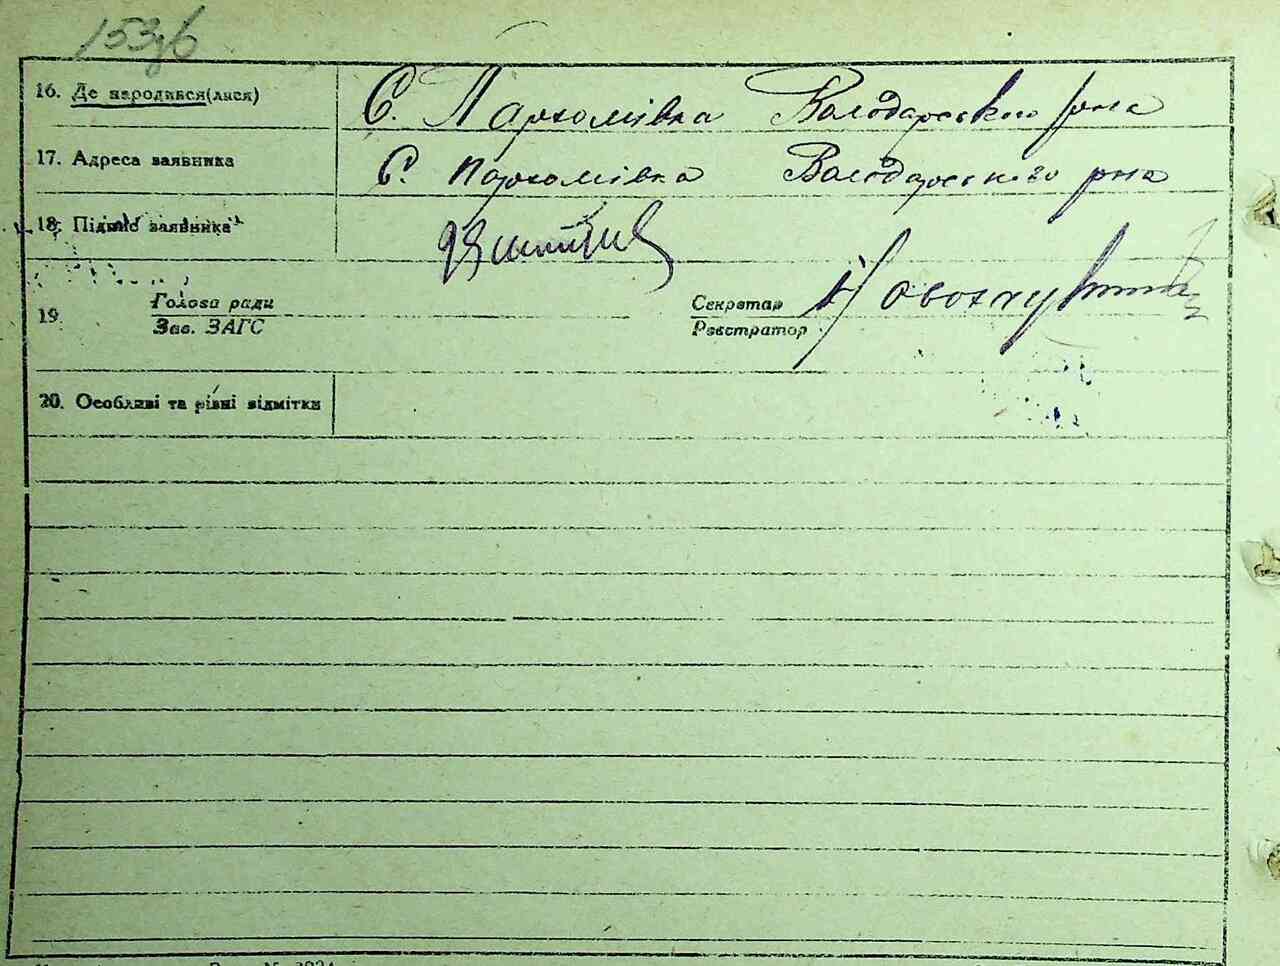 153зв
16. Де народився(лася) С. Пархомівка Володарського рна
17. Адреса заявника С. Пархомівка Володарського рна
18. Підпис заявника
19. Голова ради Секретар
Зав. ЗАГС Реєстратор
20. Особливі та різні відмітки